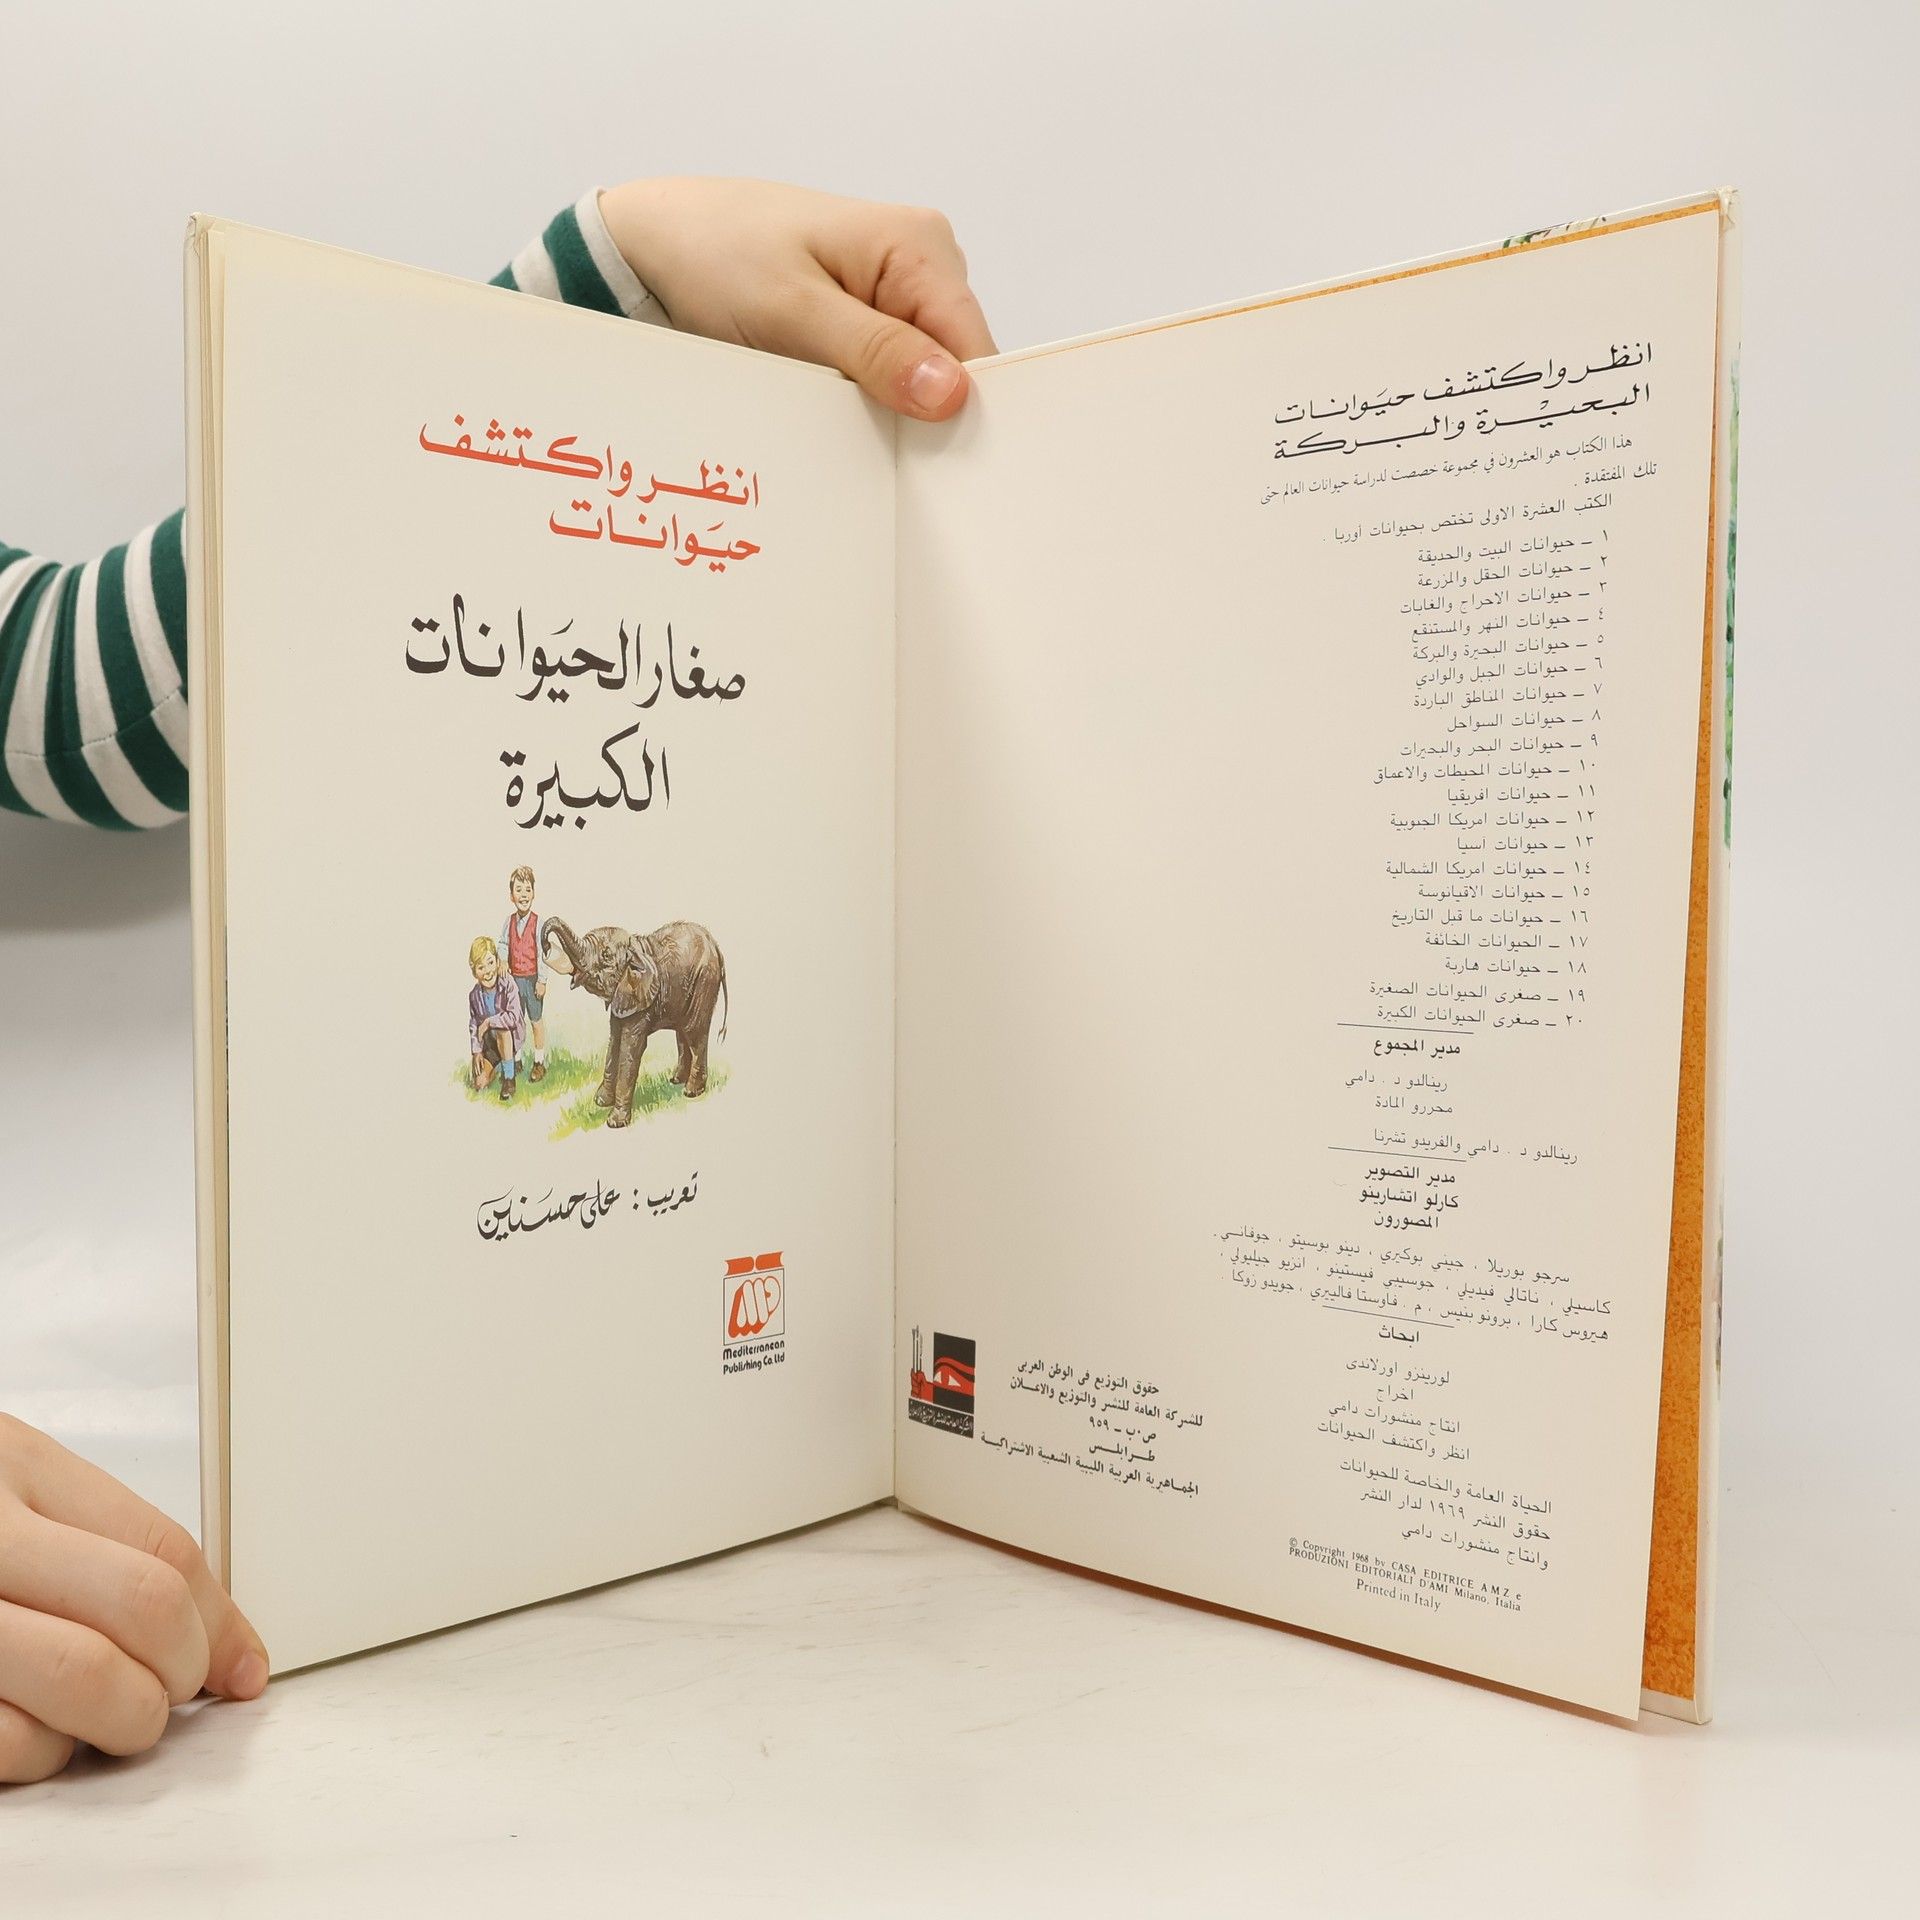 انظر واكتشف
حيَوانات
صغار الحيَوانات
الكبيرة
تعريب : على حسَنين
Mediterranean
Publishing Co. Ltd
انظر واكتشف حيَوانات
البحيْرة والبركة
هذا الكتاب هو العشرون في مجموعة خصصت لدراسة حيوانات العالم حتى
تلك المفتقدة .
الكتب العشرة الاولى تختص بحيوانات أوربا .
١ ــ حيوانات البيت والحديقة
٢ ــ حيوانات الحقل والمزرعة
٣ ــ حيوانات الاحراج والغابات
٤ ــ حيوانات النهر والمستنقع
٥ ــ حيوانات البحيرة والبركة
٦ ــ حيوانات الجبل والوادي
٧ ــ حيوانات المناطق الباردة
٨ ــ حيوانات السواحل
٩ ــ حيوانات البحر والبحيرات
١٠ ــ حيوانات المحيطات والاعماق
١١ ــ حيوانات افريقيا
١٢ ــ حيوانات امريكا الجنوبية
١٣ ــ حيوانات آسيا
١٤ ــ حيوانات امريكا الشمالية
١٥ ــ حيوانات الاقيانوسة
١٦ ــ حيوانات ما قبل التاريخ
١٧ ــ الحيوانات الخائفة
١٨ ــ حيوانات هاربة
١٩ ــ صغرى الحيوانات الصغيرة
٢٠ ــ صغرى الحيوانات الكبيرة
مدير المجموع
رينالدو د . دامي
محررو المادة
رينالدو د . دامي والفريدو تشرنا
مدير التصوير
كارلو اتشارينو
المصورون
سرجو بوريلا ، جيني بوكيري ، دينو بوسيتو ، جوفاني .
كاسيلي ، ناتالي فيديلي ، جوسيبي فيستينو ، انزيو جيليولي ،
هيروس كارا ، برونو بنيس ، م . فاوستا فالييري ، جويدو زوكا .
ابحاث
لورينزو اورلاندى
اخراج
انتاج منشورات دامي
انظر واكتشف الحيوانات
الحياة العامة والخاصة للحيوانات
حقوق النشر ١٩٦٩ لدار النشر
وانتاج منشورات دامي
© Copyright 1968 by CASA EDITRICE A M Z e
PRODUZIONI EDITORIALI D'AMI Milano, Italia
Printed in Italy
حقوق التوزيع في الوطن العربي
للشركة العامة للنشر والتوزيع والاعلان
ص٠ب ــ ٩٥٩
طرابلس
الجماهيرية العربية الليبية الشعبية الاشتراكية